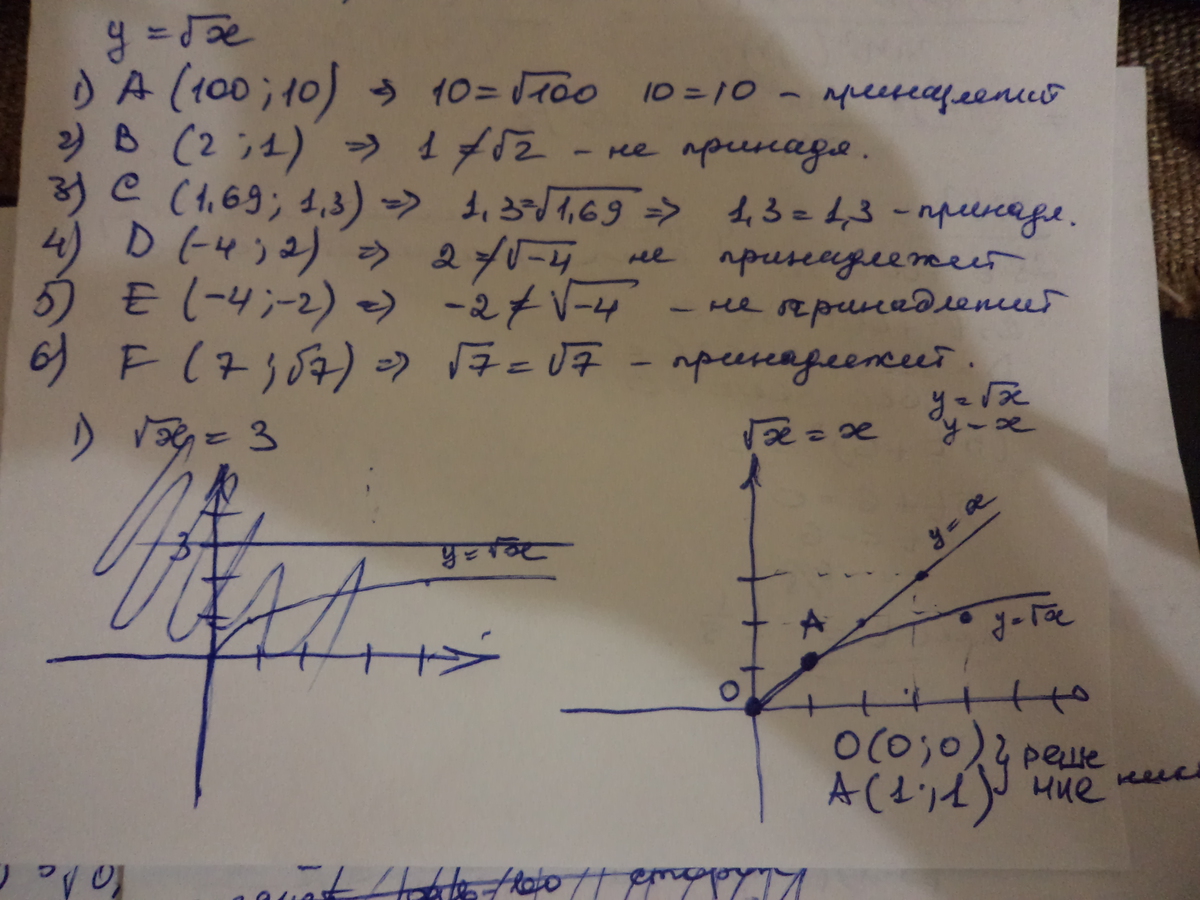 y = √x
1) A (100 ; 10) ⇒ 10 = √100 10 = 10 – принадлежит
2) B (2 ; 1) ⇒ 1 ≠ √2 – не принадл.
3) C (1,69 ; 1,3) ⇒ 1,3 = √1,69 ⇒ 1,3 = 1,3 – принадл.
4) D (-4 ; 2) ⇒ 2 ≠ √-4 не принадлежит
5) E (-4 ; -2) ⇒ -2 ≠ √-4 – не принадлежит
6) F (7 ; √7) ⇒ √7 = √7 – принадлежит.
1) √x = 3
3
y = √x
√x = x
y = √x
y = x
y = x
A
y = √x
O
O(0 ; 0) } реше
A(1 ; 1) ние